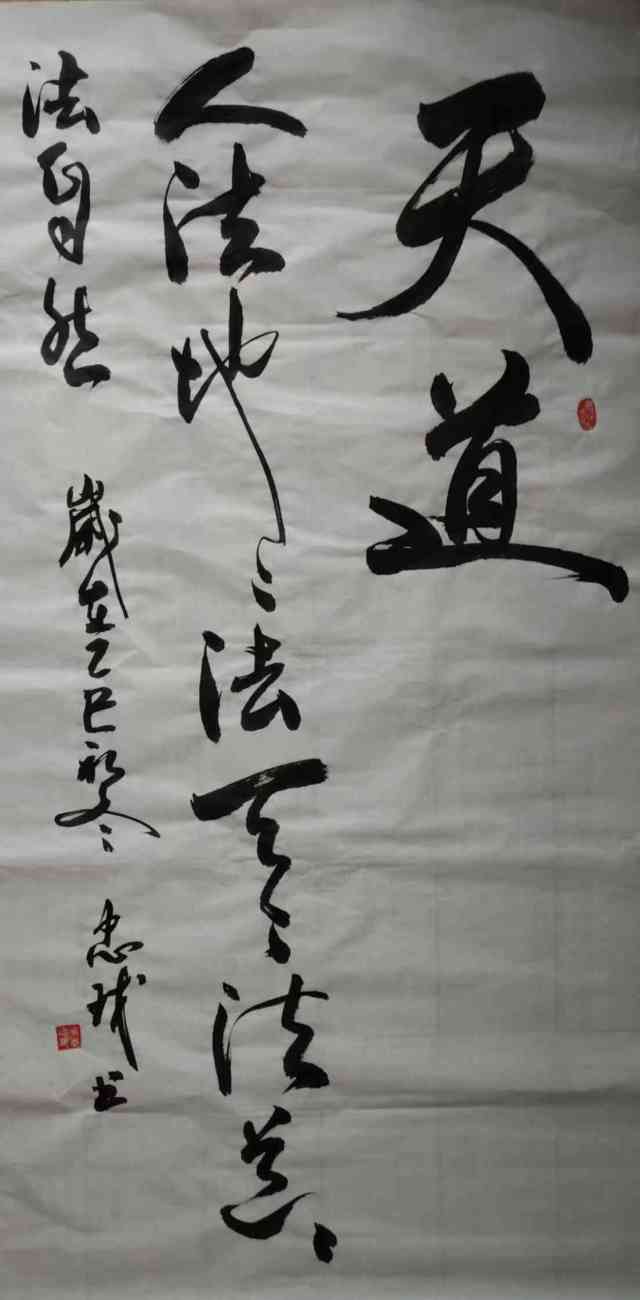 天道
人法地〻法天〻法道〻
法自然
歲在乙巳初冬〻
忠
书